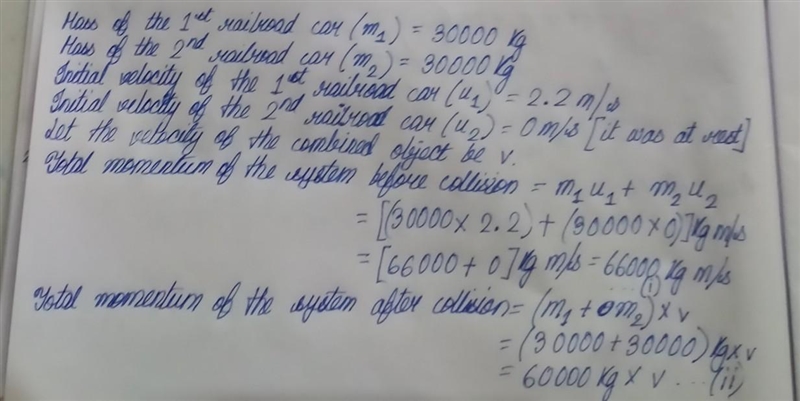 Mass of the 1st railroad car (m₁) = 30000 Kg
Mass of the 2nd railroad car (m₂) = 30000 Kg
Initial velocity of the 1st railroad car (u₁) = 2.2 m/s
Initial velocity of the 2nd railroad car (u₂) = 0 m/s [it was at rest]
Let the velocity of the combined object be v.
Total momentum of the system before collision = m₁u₁ + m₂u₂
= [(30000 × 2.2) + (30000 × 0)] Kg m/s
= [66000 + 0] Kg m/s = 66000 Kg m/s
... (i)
Total momentum of the system after collision = (m₁ + m₂) × v
= (30000 + 30000) Kg × v
= 60000 Kg × v ... (ii)